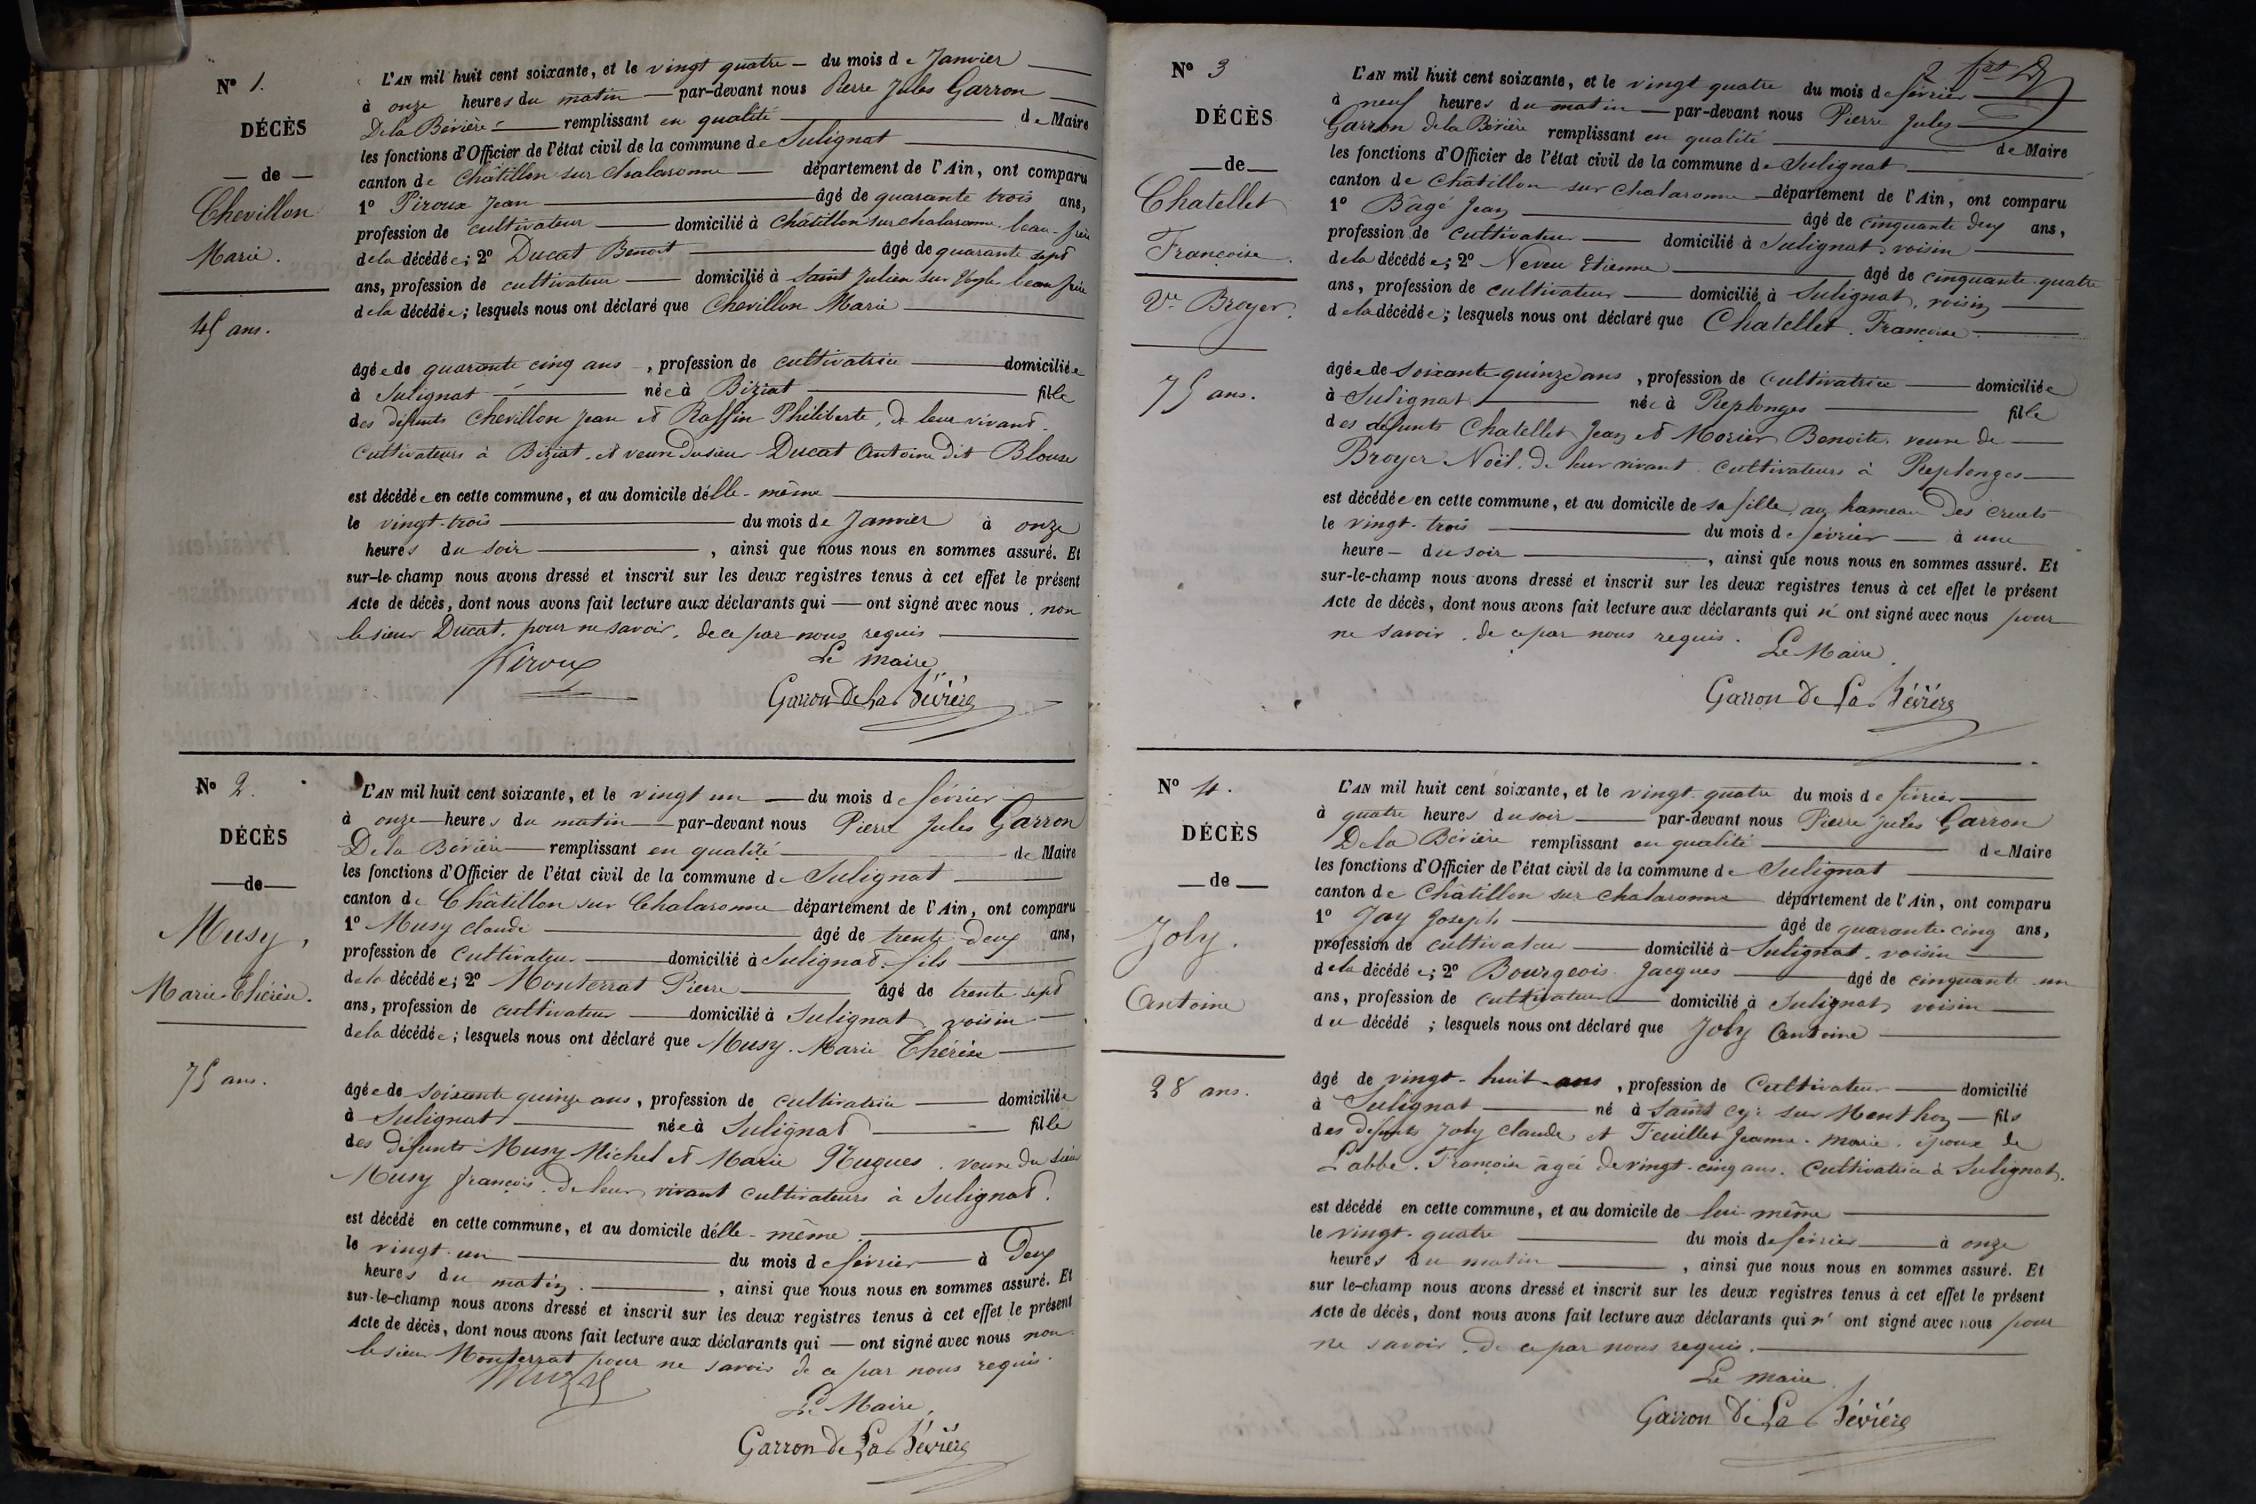 N° 1.
DÉCÈS
— de —
Chevillon
Marie.
45 ans.
L'AN mil huit cent soixante, et le vingt quatre — du mois de Janvier
à onze heures du matin — par-devant nous Pierre Jules Garron
De la Bévière — remplissant en qualité de Maire
les fonctions d'Officier de l'état civil de la commune de Sulignat
canton de Châtillon sur chalaronne — département de l'Ain, ont comparu
1° Piroux Jean — âgé de quarante trois ans,
profession de cultivateur — domicilié à Châtillon sur chalaronne. beau-frère
de la décédée; 2° Ducat Benoit — âgé de quarante sept
ans, profession de cultivateur — domicilié à Saint Julien sur Veyle beau frère
de la décédée; lesquels nous ont déclaré que Chevillon Marie
âgée de quarante cinq ans, profession de cultivatrice — domiciliée
à Sulignat — née à Biziat — fille
des défunts Chevillon Jean et Raffin Philiberte, de leur vivant
cultivateurs à Biziat. et veuve du sieur Ducat Antoine dit Blouse
est décédée en cette commune, et au domicile délle-même
le vingt-trois — du mois de Janvier à onze
heures du soir —, ainsi que nous nous en sommes assuré. Et
sur-le-champ nous avons dressé et inscrit sur les deux registres tenus à cet effet le présent
Acte de décès, dont nous avons fait lecture aux déclarants qui — ont signé avec nous. non
le sieur Ducat. pour ne savoir. de ce par nous requis
Piroux
Le maire
Garron De La Bévière
N° 2.
DÉCÈS
— de —
Musy,
Marie Thérèse.
75 ans.
L'AN mil huit cent soixante, et le vingt un — du mois de février
à onze — heures du matin — par-devant nous Pierre Jules Garron
De la Bévière — remplissant en qualité de Maire
les fonctions d'Officier de l'état civil de la commune de Sulignat
canton de Châtillon sur Chalaronne département de l'Ain, ont comparu
1° Musy claude — âgé de trente deux ans,
profession de cultivateur — domicilié à Sulignat. fils
de la décédée; 2° Monterrat Pierre — âgé de trente sept
ans, profession de cultivateur — domicilié à Sulignat, voisin
de la décédée; lesquels nous ont déclaré que Musy. Marie Thérèse
âgée de soixante quinze ans, profession de cultivatrice — domiciliée
à Sulignat — née à Sulignat — fille
des défunts Musy Michel et Marie Hugues. veuve du sieur
Musy françois. de leur vivant cultivateurs à Sulignat.
est décédé en cette commune, et au domicile délle-même
le vingt-un — du mois de février — à Deux
heures du matin. —, ainsi que nous nous en sommes assuré. Et
sur-le-champ nous avons dressé et inscrit sur les deux registres tenus à cet effet le présent
Acte de décès, dont nous avons fait lecture aux déclarants qui — ont signé avec nous non
le sieur Monterrat pour ne savoir de ce par nous requis.
Le Maire,
Garron De La Bévière
N° 3
DÉCÈS
— de —
Chatellet
Françoise.
Ve Broyer.
75 ans.
L'AN mil huit cent soixante, et le vingt quatre du mois de février
à neuf heures du matin — par-devant nous Pierre Jules
Garron de la Bévière remplissant en qualité de Maire
les fonctions d'Officier de l'état civil de la commune de Sulignat
canton de Châtillon sur chalaronne — département de l'Ain, ont comparu
1° Bâgé Jean — âgé de cinquante deux ans,
profession de cultivateur — domicilié à Sulignat. voisin
de la décédée; 2° Neveu Etienne — âgé de cinquante-quatre
ans, profession de cultivateur — domicilié à Sulignat, voisin
de la décédée; lesquels nous ont déclaré que Chatellet. Françoise.
âgée de soixante-quinze ans, profession de cultivatrice — domiciliée
à Sulignat — née à Replonges — fille
des défunts Chatellet Jean et Morier Benoite. veuve de
Broyer Noël. de leur vivant. cultivateurs à Replonges
est décédée en cette commune, et au domicile de sa fille, au hameau des cruets
le vingt-trois — du mois de février — à une
heure — du soir —, ainsi que nous nous en sommes assuré. Et
sur-le-champ nous avons dressé et inscrit sur les deux registres tenus à cet effet le présent
Acte de décès, dont nous avons fait lecture aux déclarants qui n' ont signé avec nous pour
ne savoir. de ce par nous requis.
Le Maire.
Garron De La Bévière
N° 4.
DÉCÈS
— de —
Joly.
Antoine
28 ans.
L'AN mil huit cent soixante, et le vingt-quatre du mois de février
à quatre heures du soir — par-devant nous Pierre Jules Garron
De la Bévière remplissant en qualité de Maire
les fonctions d'Officier de l'état civil de la commune de Sulignat
canton de Châtillon sur chalaronne département de l'Ain, ont comparu
1° Jay Joseph — âgé de quarante-cinq ans,
profession de cultivateur — domicilié à Sulignat. voisin
de la décédé e; 2° Bourgeois Jacques — âgé de cinquante-un
ans, profession de cultivateur — domicilié à Sulignat, voisin
du décédé ; lesquels nous ont déclaré que Joly Antoine
âgé de vingt-huit ans, profession de Cultivateur — domicilié
à Sulignat — né à Saint cyr sur Menthon — fils
des défunts Joly Claude, et Feuillet Jeanne-Marie. époux de
Labbe. Françoise âgée de vingt-cinq ans. Cultivatrice à Sulignat.
est décédé en cette commune, et au domicile de lui-même
le vingt-quatre — du mois de février — à onze
heures du matin —, ainsi que nous nous en sommes assuré. Et
sur le-champ nous avons dressé et inscrit sur les deux registres tenus à cet effet le présent
Acte de décès, dont nous avons fait lecture aux déclarants qui n' ont signé avec nous pour
ne savoir. de ce par nous requis.
Le maire
Garron De La Bévière